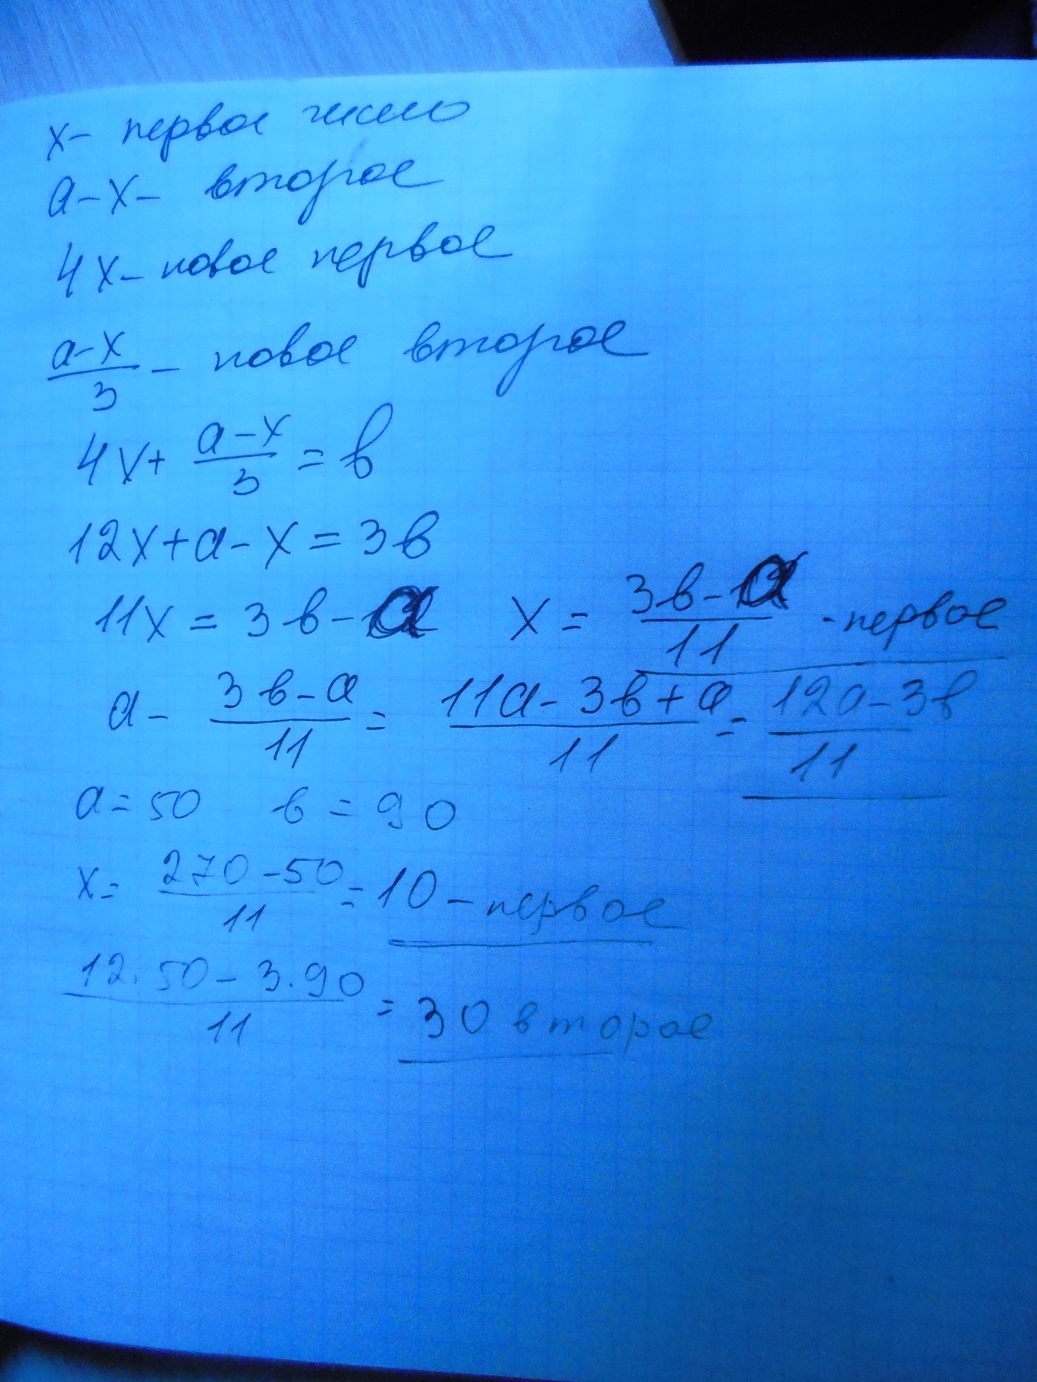 x- первое число
a-x- второе
4x- новое первое
(a-x)/3 - новое второе
4x + (a-x)/3 = в
12x+a-x=3в
11x = 3в-a x = (3в-a)/11 - первое
a - (3в-a)/11 = (11a-3в+a)/11 = (12a-3в)/11
a=50 в=90
x= (270-50)/11 = 10 - первое
(12·50-3·90)/11 = 30 второе